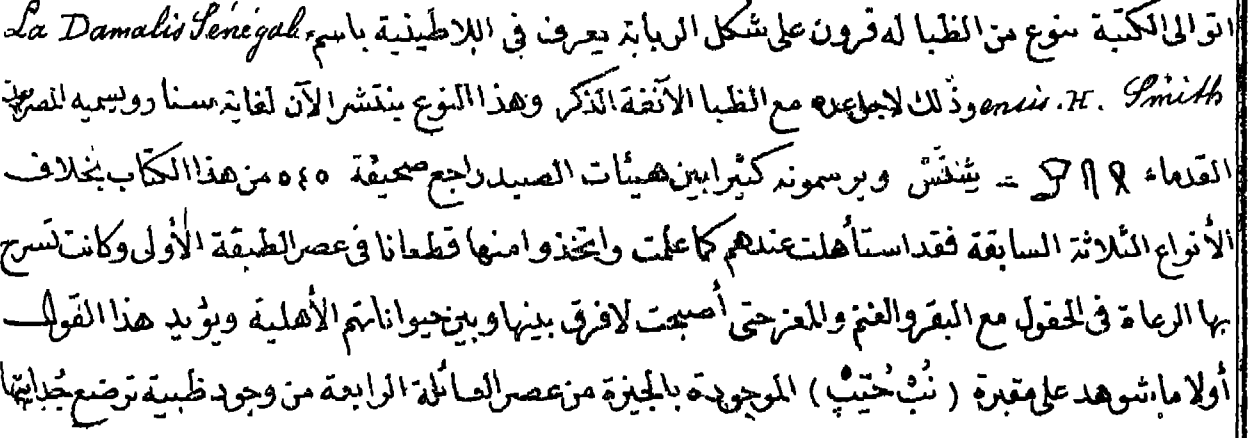 اتوالى الكتبة بنوع من الظبا له قرون على شكل الربابة يعرف فى اللاطينية باسم La Damalis Sénégal
ensis. H. Smith وذلك لاجل عده مع الظبا الآنفة الذكر وهذا النوع ينتشر الآن لغاية سنار ويسميه المصريون
القدماء = شِشَسْ ويرسمونه كثيرا بين هيئات الصيد راجع صحيفة ٥٤٥ من هذا الكتاب بخلاف
الأنواع الثلاثة السابقة فقد استأهلت عندهم كما علمت واتخذوا منها قطعانا فى عصر الطبقة الأولى وكانت تسرح
بها الرعاة فى الحقول مع البقر والغنم والمعز حتى أصبحت لا فرق بينها وبين حيواناتهم الأهلية ويؤيد هذا القول
أولا ما شوهد على مقبرة ( نُبْ حُتِيبْ ) الموجودة بالجيزة من عصر العائلة الرابعة من وجود ظبية ترضع جُدايتها